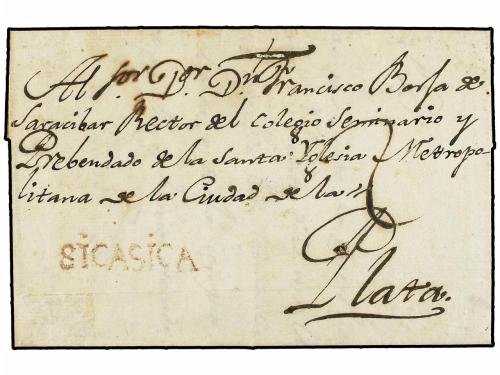 Al sor. Dor. Dn. Francisco Borja de
Saracibar Rector del Colegio Seminario y
Prebendado de la Santa Yglesia Metropo-
litana de la Ciudad de la
Plata.
SICASICA